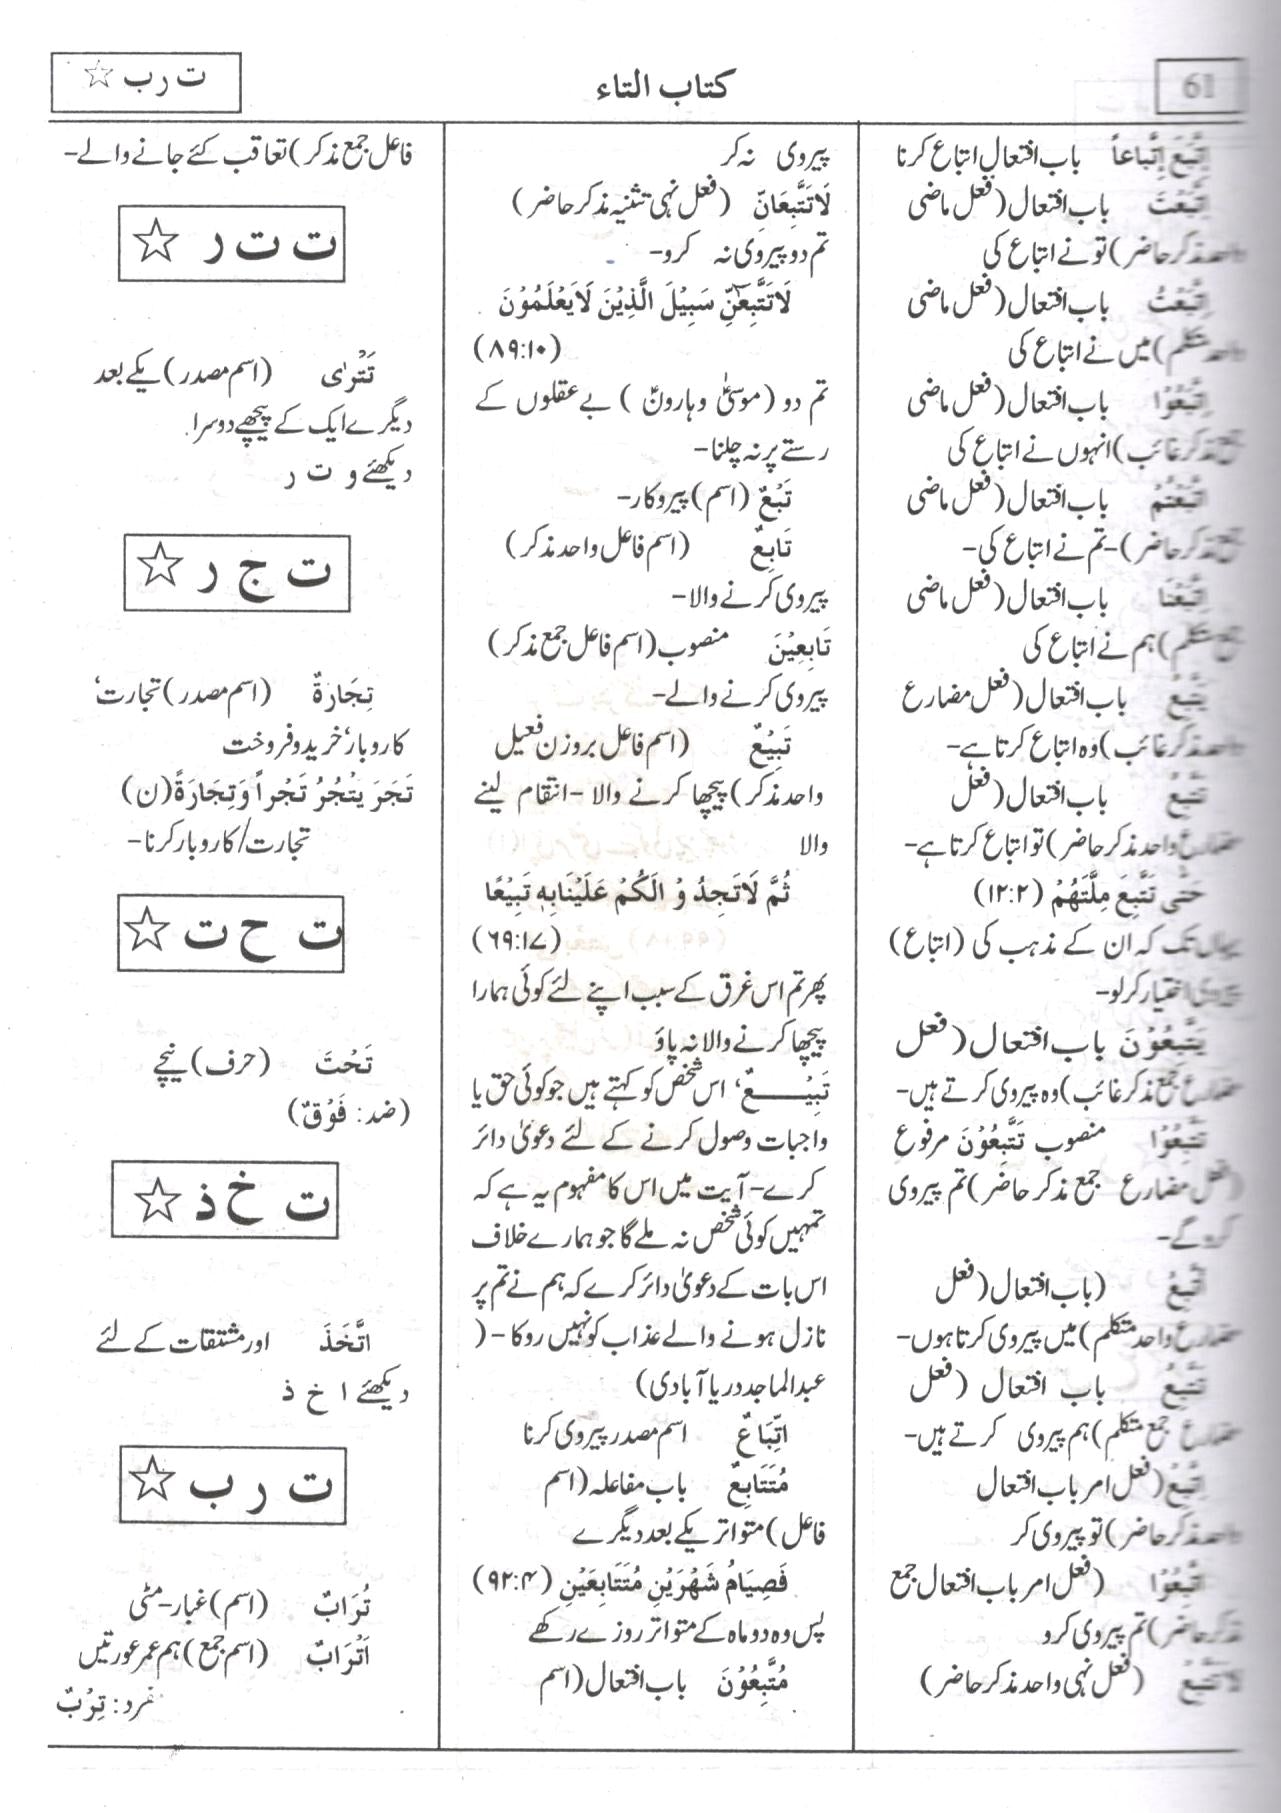 61
کتاب التاء
ت ر ب ☆
اِتَّبَعَ اِتِّبَاعاً باب افتعال اتباع کرنا
اِتَّبَعْتَ باب افتعال (فعل ماضی
واحد مذکر حاضر) تو نے اتباع کی
اِتَّبَعْتُ باب افتعال (فعل ماضی
واحد متکلم) میں نے اتباع کی
اِتَّبَعُوْا باب افتعال (فعل ماضی
جمع مذکر غائب) انہوں نے اتباع کی
اتَّبَعْتُمْ باب افتعال (فعل ماضی
جمع مذکر حاضر)- تم نے اتباع کی-
اِتَّبَعْنَا باب افتعال (فعل ماضی
جمع متکلم) ہم نے اتباع کی
يَتَّبِعُ باب افتعال (فعل مضارع
واحد مذکر غائب) وہ اتباع کرتا ہے-
تَتَّبِعُ باب افتعال (فعل
مضارع واحد مذکر حاضر) تو اتباع کرتا ہے-
حَتّٰى تَتَّبِعَ مِلَّتَهُمْ (۱۲:۲)
یہاں تک کہ ان کے مذہب کی (اتباع)
پیروی اختیار کر لو-
يَتَّبِعُوْنَ باب افتعال (فعل
مضارع جمع مذکر غائب) وہ پیروی کرتے ہیں-
تَتَّبِعُوْا منصوب تَتَّبِعُوْنَ مرفوع
(فعل مضارع جمع مذکر حاضر) تم پیروی
کرو گے-
اَتَّبِعُ (باب افتعال (فعل
مضارع واحد متکلم) میں پیروی کرتا ہوں-
نَتَّبِعُ باب افتعال (فعل
مضارع جمع متکلم) ہم پیروی کرتے ہیں-
اِتَّبِعْ (فعل امر باب افتعال
واحد مذکر حاضر) تو پیروی کر
اِتَّبِعُوْا (فعل امر باب افتعال جمع
مذکر حاضر) تم پیروی کرو
لاَ تَتَّبِعْ (فعل نہی واحد مذکر حاضر)
پیروی نہ کر
لاَ تَتَّبِعَانِّ (فعل نہی تثنیہ مذکر حاضر)
تم دو پیروی نہ کرو-
لَاتَتَّبِعٰٓنِّ سَبِيْلَ الَّذِيْنَ لَايَعْلَمُوْنَ
(۸۹:۱۰)
تم دو (موسیٰؑ و ہارونؑ) بے عقلوں کے
رستے پر نہ چلنا-
تَبْعٌ (اسم) پیروکار-
تَابِعٌ (اسم فاعل واحد مذکر)
پیروی کرنے والا-
تَابِعِيْنَ منصوب (اسم فاعل جمع مذکر)
پیروی کرنے والے-
تَبِيْعٌ (اسم فاعل بروزن فعیل
واحد مذکر) پیچھا کرنے والا- انتقام لینے
والا
ثُمَّ لَاتَجِدُ وْ الَكُمْ عَلَيْنَابِهٖ تَبِيْعًا
(۶۹:۱۷)
پھر تم اس غرق کے سبب اپنے لئے کوئی ہمارا
پیچھا کرنے والا نہ پاؤ
تَبِيْعٌ، اس شخص کو کہتے ہیں جو کوئی حق یا
واجبات وصول کرنے کے لئے دعویٰ دائر
کرے- آیت میں اس کا مفہوم یہ ہے کہ
تمہیں کوئی شخص نہ ملے گا جو ہمارے خلاف
اس بات کے دعویٰ دائر کرے کہ ہم نے تم پر
نازل ہونے والے عذاب کو نہیں روکا- (
عبدالماجد دریا آبادی)
اتِّبَاعٌ اسم مصدر پیروی کرنا
مُتَتَابِعٌ باب مفاعلہ (اسم
فاعل) متواتر یکے بعد دیگرے
فَصِيَامُ شَهْرَيْنِ مُتَتَابِعَيْنِ (۹۲:۴)
پس وہ دو ماہ کے متواتر روزے رکھے
مُتَّبِعُوْنَ باب افتعال (اسم
فاعل جمع مذکر) تعاقب کئے جانے والے-
ت ت ر ☆
تَتْرٰى (اسم مصدر) یکے بعد
دیگرے ایک کے پیچھے دوسرا.
دیکھئے و ت ر
ت ج ر ☆
تِجَارَةٌ (اسم مصدر) تجارت،
کاروبار، خرید و فروخت
تَجَرَ يَتْجُرُ تَجْراً وَتِجَارَةً (ن)
تجارت/ کاروبار کرنا-
ت ح ت ☆
تَحْتَ (حرف) نیچے
(ضد: فَوْقٌ)
ت خ ذ ☆
اتَّخَذَ اور مشتقات کے لئے
دیکھئے ا خ ذ
ت ر ب ☆
تُرَابٌ (اسم) غبار- مٹی
اَتْرَابٌ (اسم جمع) ہم عمر عورتیں
مفرد: تِرْبٌ